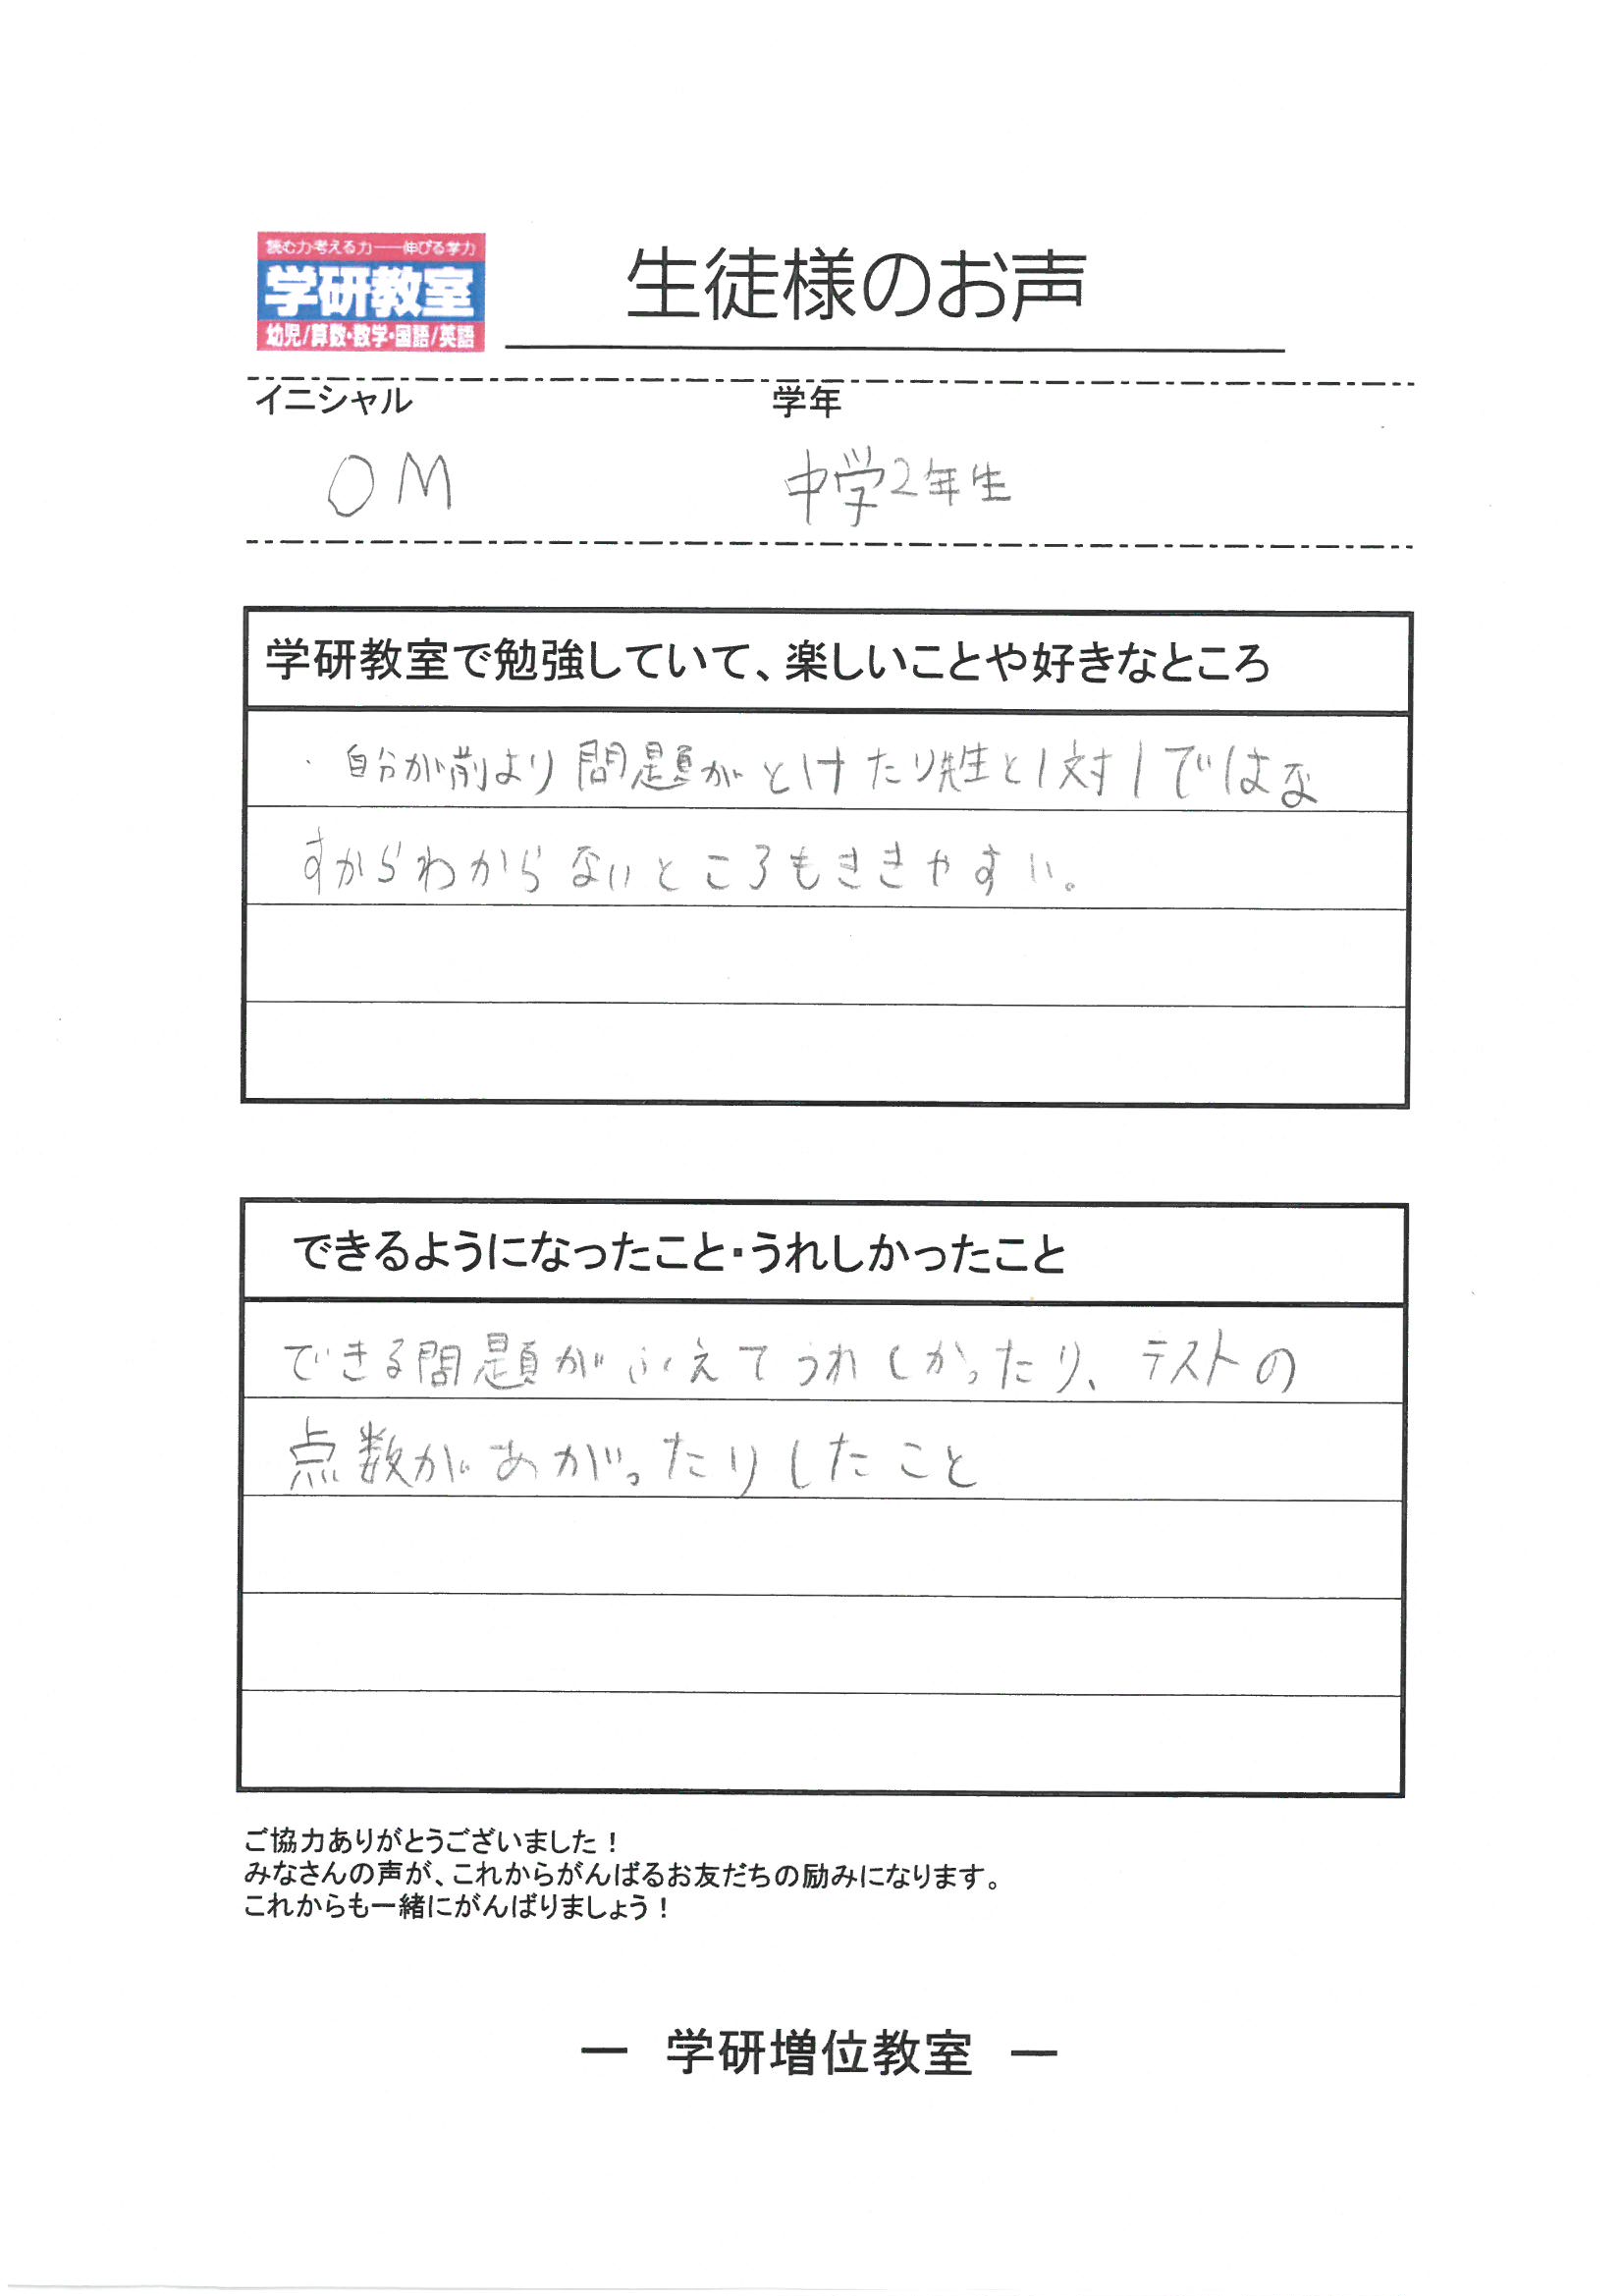 読む力考える力──伸びる学力
学研教室
幼児/算数・数学・国語/英語
生徒様のお声
イニシャル 学年
OM 中学2年生
学研教室で勉強していて、楽しいことや好きなところ
・自分が前より問題がとけたり先生と1対1ではな
すからわからないところもききやすい。
できるようになったこと・うれしかったこと
できる問題がふえてうれしかったり、テストの
点数があがったりしたこと
ご協力ありがとうございました！
みなさんの声が、これからがんばるお友だちの励みになります。
これからも一緒にがんばりましょう！
― 学研増位教室 ―